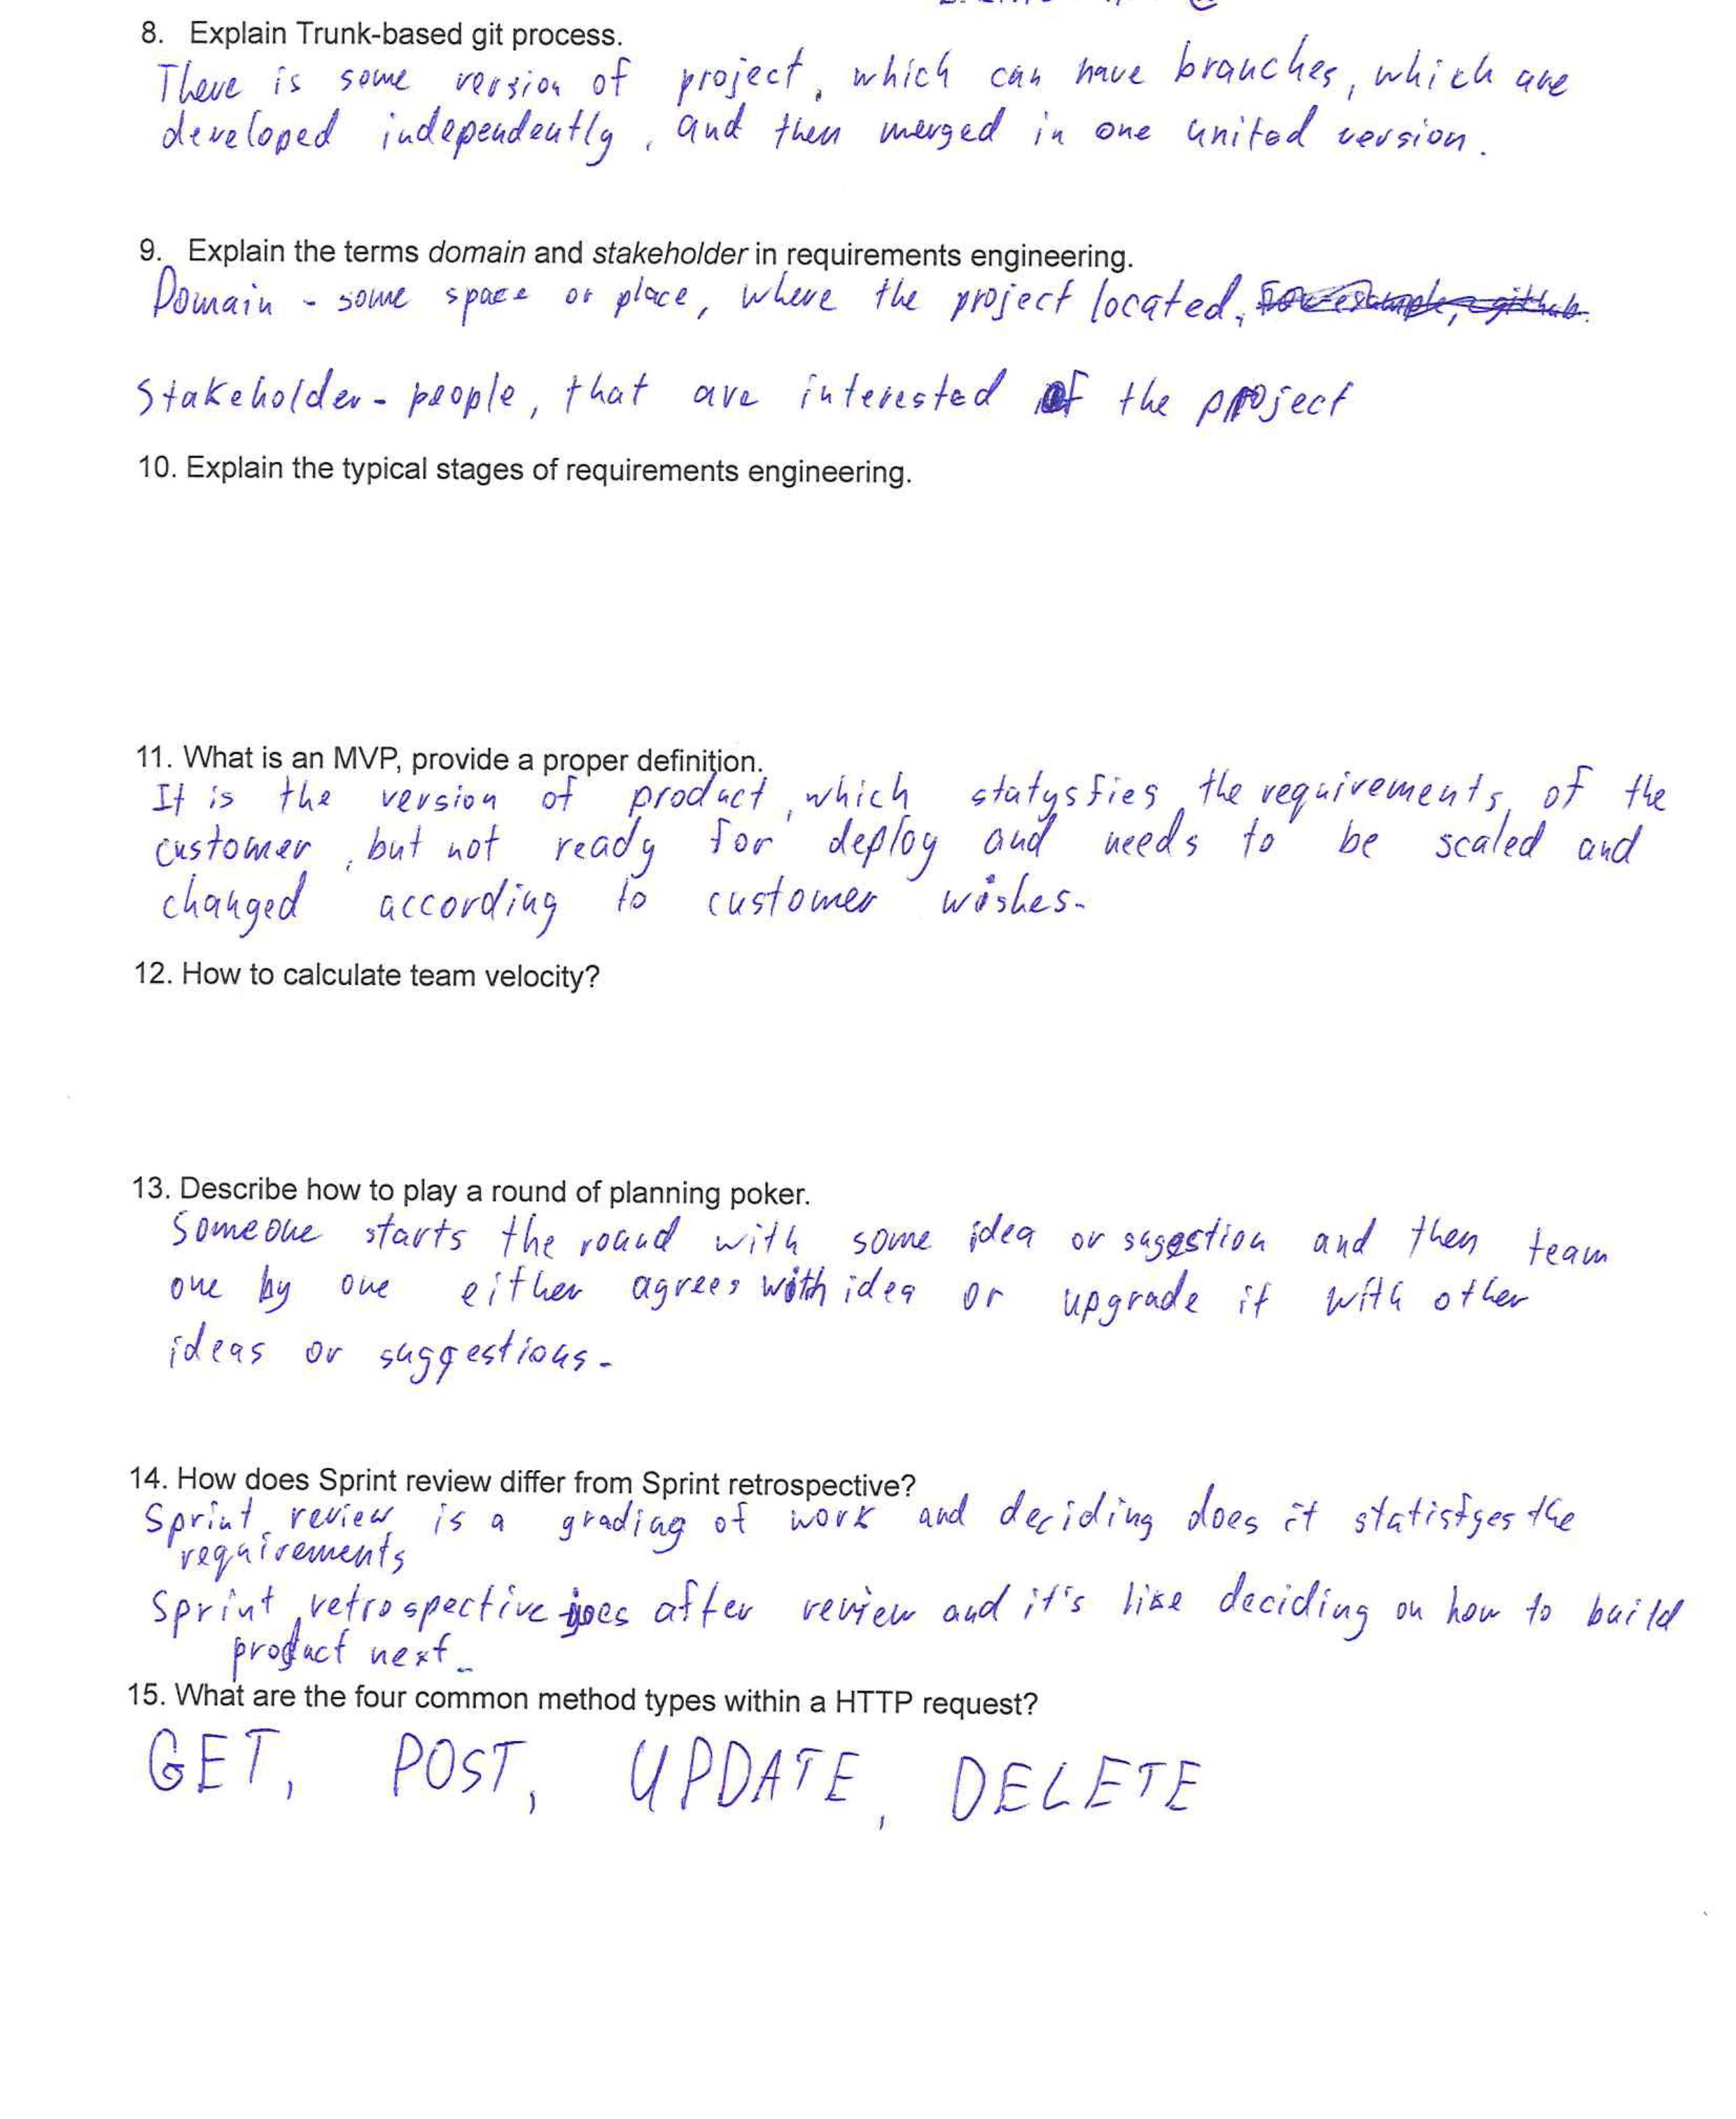 8. Explain Trunk-based git process.
There is some version of project, which can have branches, which are
developed independently, and then merged in one united version.
9. Explain the terms domain and stakeholder in requirements engineering.
Domain - some space or place, where the project located. For example, github.
Stakeholder - people, that are interested of the project
10. Explain the typical stages of requirements engineering.
11. What is an MVP, provide a proper definition.
It is the version of product, which statysfies the requirements of the
customer, but not ready for deploy and needs to be scaled and
changed according to customer wishes.
12. How to calculate team velocity?
13. Describe how to play a round of planning poker.
Someone starts the round with some idea or sugestion and then team
one by one either agrees with idea or upgrade it with other
ideas or suggestions.
14. How does Sprint review differ from Sprint retrospective?
Sprint review is a grading of work and deciding does it statisfyes the
requirements
Sprint retrospective goes after review and it's like deciding on how to build
product next.
15. What are the four common method types within a HTTP request?
GET, POST, UPDATE, DELETE